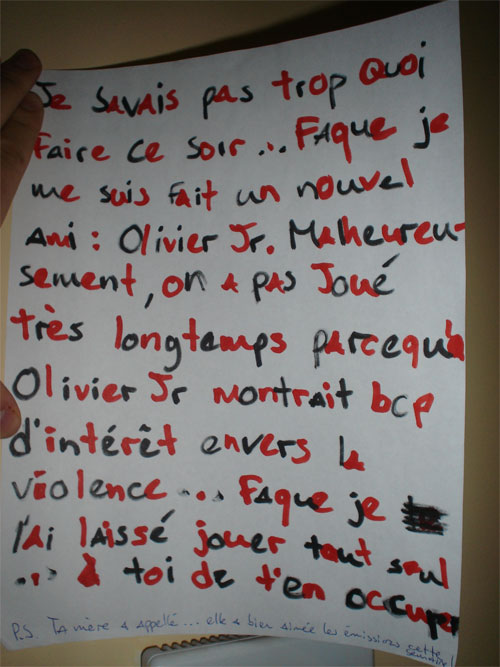 Je savais pas trop Quoi
faire ce soir ... Faque je
me suis fait un nouvel
Ami : Olivier Jr. Malheureu-
sement, on a pas Joué
très longtemps parcequ'à
Olivier Jr montrait bcp
d'intérêt envers la
violence ... Faque je
l'ai laissé jouer tout seul
... à toi de t'en occuper
P.S. Ta mère a appellé ... elle a bien aimée les émissions cette
semaine!